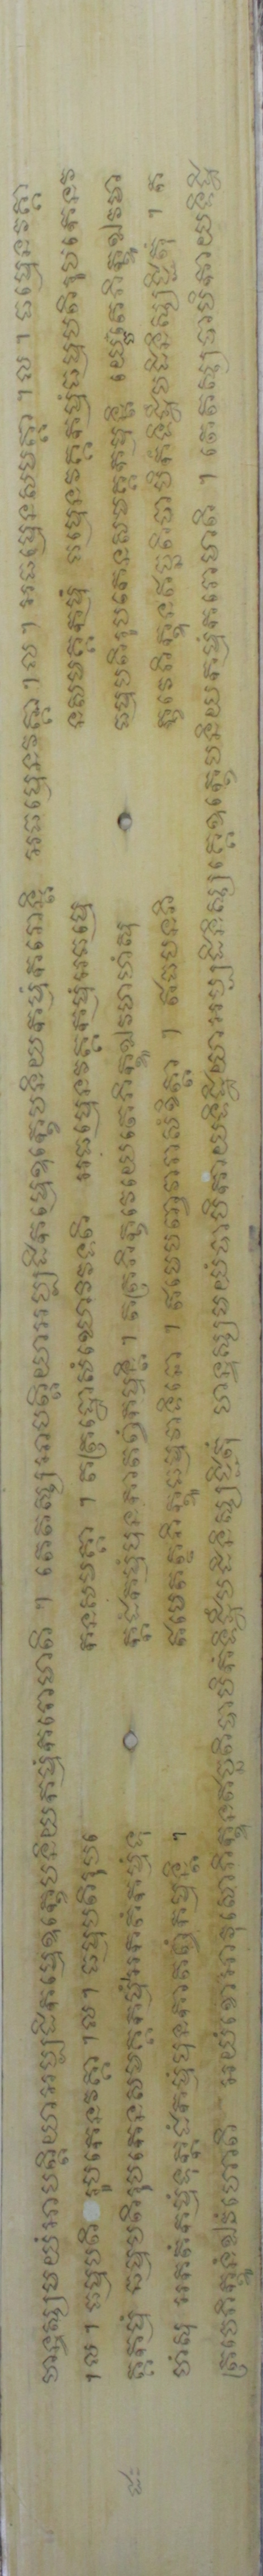 ហន្ទស្សមយំអាបត្តិយាអប្បដិកម្មេឧក្ខេបនិយកម្មំករោមាតិ ។ តេតស្សអាបត្តិយាអប្បដិកម្មេឧក្ខេបនិយកម្មំករោន្តិ អធម្មេនវគ្គា ។ ល ។ អធម្មេនសមគ្គា ។ ល ។ ធម្មេនវគ្គា
។ ល ។ ធម្មបតិរូបកេនវគ្គា ។ ល ។ ធម្មបតិរូបកេនសមគ្គា ។ តត្រដ្ឋោសំឃោវិវទតិ អធម្មេនវគ្គកម្មំអធម្មេនសមគ្គកម្មំ ធម្មេនវគ្គកម្មំធម្មបតិរូបកេនវ
គ្គកម្មំ ធម្មបតិរូបកេនសមគ្គកម្មំអកតំកម្មំទុក្កដំកម្មំបុនកាតព្វំកម្មន្តិ ។ តត្រភិក្ខវេយេតេភិក្ខូឯវមាហំសុ ធម្មបតិរូបកេនសមគ្គកម្មន្តិ យេចតេភិក្ខូឯវមា
ហំសុ អកតំកម្មំទុក្កដំកម្មំបុនកាតព្វំកម្មន្តិ ។ ឥមេតត្ថភិក្ខូធម្មវាទិនោ ។ ឥមេបញ្ចវារាសំខិត្តា ។ ឥធបនភិក្ខវេភិក្ខុនឥច្ឆតិបាបិកំទិដ្ឋឹបដិនិស្សជ្ជិតុំ ។ ត
ត្រចេភិក្ខូនំឯវំហោតិ អយំខោអាវុសោភិក្ខុនឥច្ឆតិបាបិកំទិដ្ឋឹបដិនិស្សជ្ជិតុំ ហន្ទស្សមយំបាបិកាយទិដ្ឋិយាអប្បដិនិស្សគ្គេឧក្ខេបនិយកម្មំករោមាតិ ។ តេតស្សបាបិកាយទិដ្ឋិ